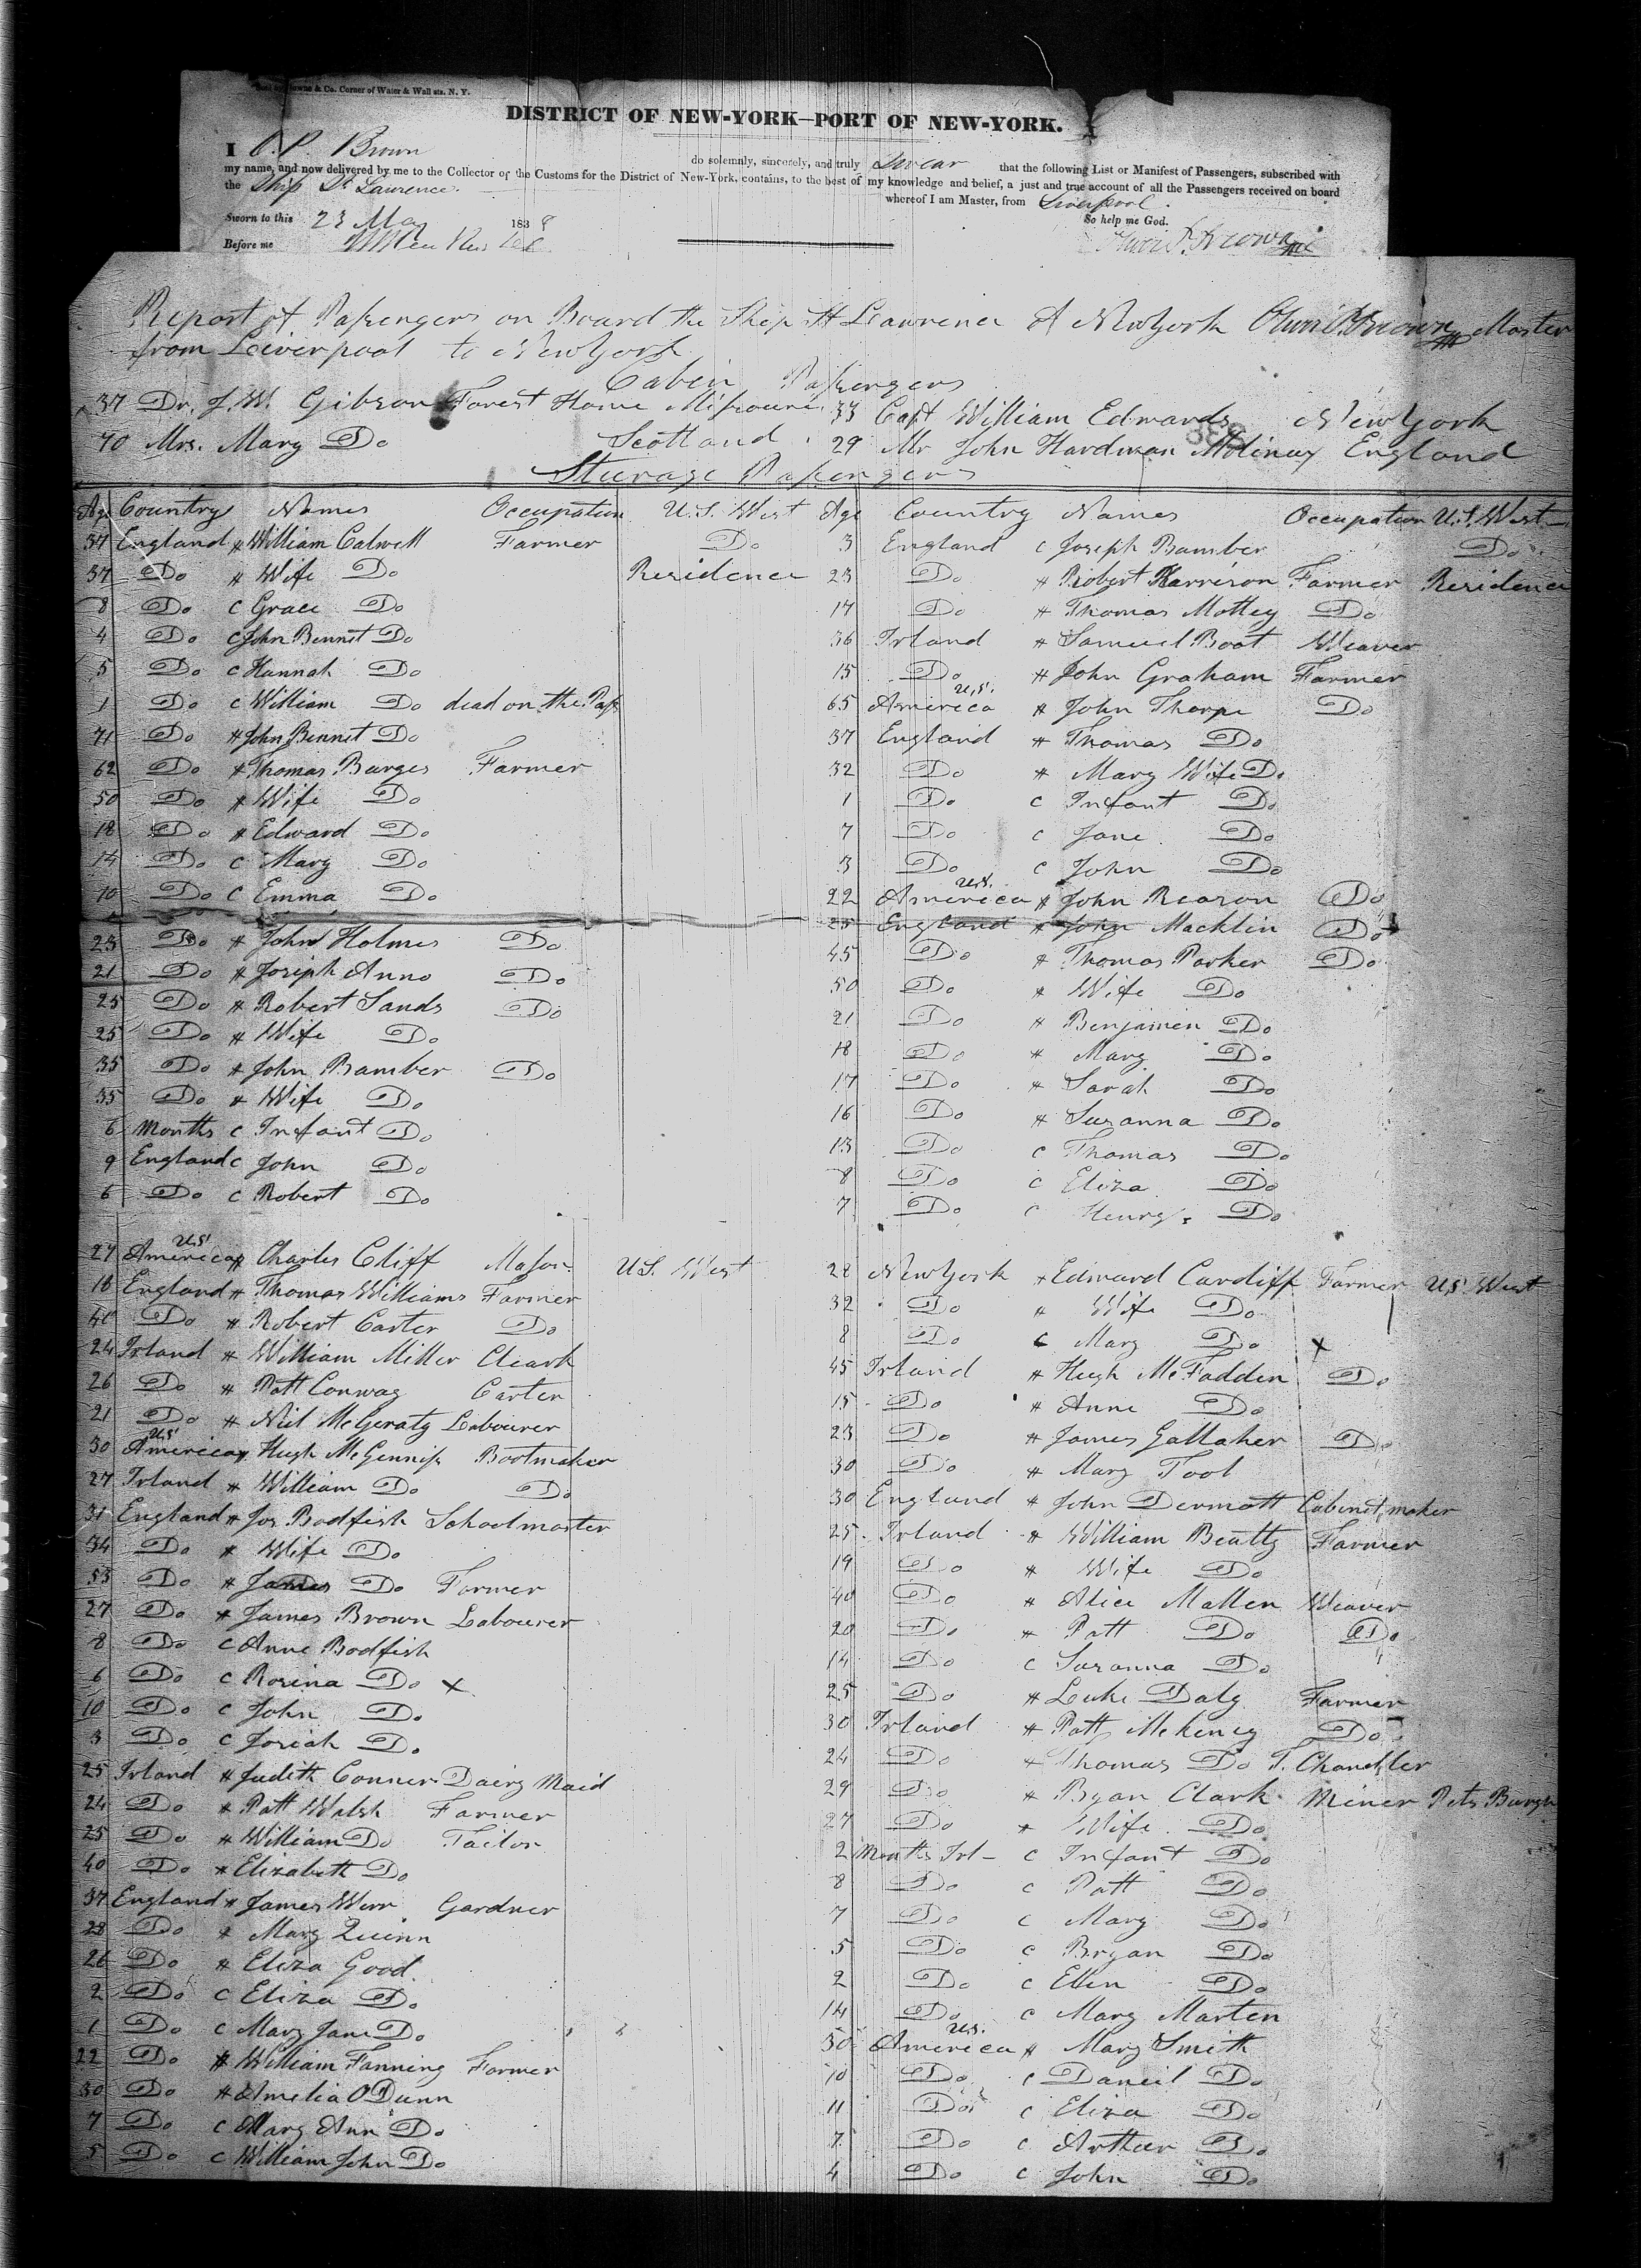 & Co. Corner of Water & Wall sts. N. Y.
DISTRICT OF NEW-YORK—PORT OF NEW-YORK.
I O. P. Brown do solemnly, sincerely, and truly Swear that the following List or Manifest of Passengers, subscribed with
my name, and now delivered by me to the Collector of the Customs for the District of New-York, contains, to the best of my knowledge and belief, a just and true account of all the Passengers received on board
the Ship St Lawrence. whereof I am Master, from Liverpool.
Sworn to this 23 May 1838 So help me God.
Before me
Report of Passengers on Board the Ship St Lawrence of New York Brown Master
from Leiverpool to New York
Cabin Passengers
37 Dr. J. W. Gibson Forest Home Missouri
70 Mrs. Mary Do Scotland
33 Capt William Edwards New York
29 Mr John Hardman Molinay England
Steurage Passengers
Age Country Names Occupation U.S. West
37 England * William Calwell Farmer Do
37 Do * Wife Do Residence
8 Do c Grace Do
4 Do c John Bennet Do
5 Do c Hannah Do
1 Do c William Do dead on the Pass
71 Do * John Bennet Do
62 Do * Thomas Burges Farmer
50 Do * Wife Do
18 Do * Edward Do
14 Do c Mary Do
10 Do c Emma Do
23 Do * John Holmes Do
21 Do * Joseph Anno Do
25 Do * Robert Sands Do
25 Do * Wife Do
35 Do * John Bamber Do
35 Do * Wife Do
6 Months c Infant Do
9 England c John Do
6 Do c Robert Do
27 America U.S. * Charles Cliff Mason U.S. West
18 England * Thomas Williams Farmer
40 Do * Robert Carter Do
24 Irland * William Miller Cleark
26 Do * Patt Conway Carter
21 Do * Niel McGeraty Labourer
30 America U.S. * Hugh McGenniss Bootmaker
27 Irland * William Do Do
31 England * Jos Bodfish Schoolmaster
34 Do * Wife Do
53 Do * James Do Farmer
27 Do * James Brown Labourer
8 Do c Anne Bodfish
6 Do c Rosina Do x
10 Do c John Do
3 Do c Josiah Do
25 Irland * Judith Conner Dairy Maid
24 Do * Patt Walsh Farmer
25 Do * William Do Tailor
40 Do * Elizabeth Do
37 England * James Wier Gardner
28 Do * Mary Quinn
26 Do * Eliza Good
2 Do c Eliza Do
1 Do c Mary Jane Do
22 Do * William Fanning Farmer
30 Do * Amelia O Dunn
7 Do c Mary Ann Do
5 Do c William John Do
Age Country Names Occupation U.S. West
3 England c Joseph Bamber Do
23 Do * Robert Harrison Farmer Residence
17 Do * Thomas Mottey Do
36 Irland * Samuel Boat Weaver
15 Do * John Graham Farmer
65 America U.S. * John Thorpe Do
37 England * Thomas Do
32 Do * Mary Wife Do
1 Do c Infant Do
7 Do c Jane Do
3 Do c John Do
22 America U.S. * John Rearon Do
25 England * John Macklin Do
45 Do * Thomas Parker Do
50 Do * Wife Do
21 Do * Benjamin Do
18 Do * Mary Do
17 Do * Sarah Do
16 Do * Suzanna Do
13 Do c Thomas Do
8 Do c Eliza Do
7 Do c Henry Do
28 New York * Edward Cardiff Farmer U.S. West
32 Do * Wife Do
8 Do c Mary Do x
45 Irland * Hugh McFadden Do
15 Do * Anne Do
23 Do * James Gallaher Do
30 Do * Mary Tool
30 England * John Dermott Cabinet maker
25 Irland * William Beatty Farmer
19 Do * Wife Do
40 Do * Alice Mallen Weaver
20 Do * Patt Do Do
14 Do c Suzanna Do
25 Do * Luke Daly Farmer
30 Irland * Patt McKeney Do
24 Do * Thomas Do T. Chandler
29 Do * Bryan Clark Miner Pits Burgh
27 Do * Wife Do
2 Months Irl- c Infant Do
8 Do c Patt Do
7 Do c Mary Do
5 Do c Bryan Do
2 Do c Ellen Do
14 Do c Mary Marten
30 America U.S. * Mary Smith
10 Do c Daneil Do
11 Do c Eliza Do
7 Do c Arthur Do
4 Do c John Do